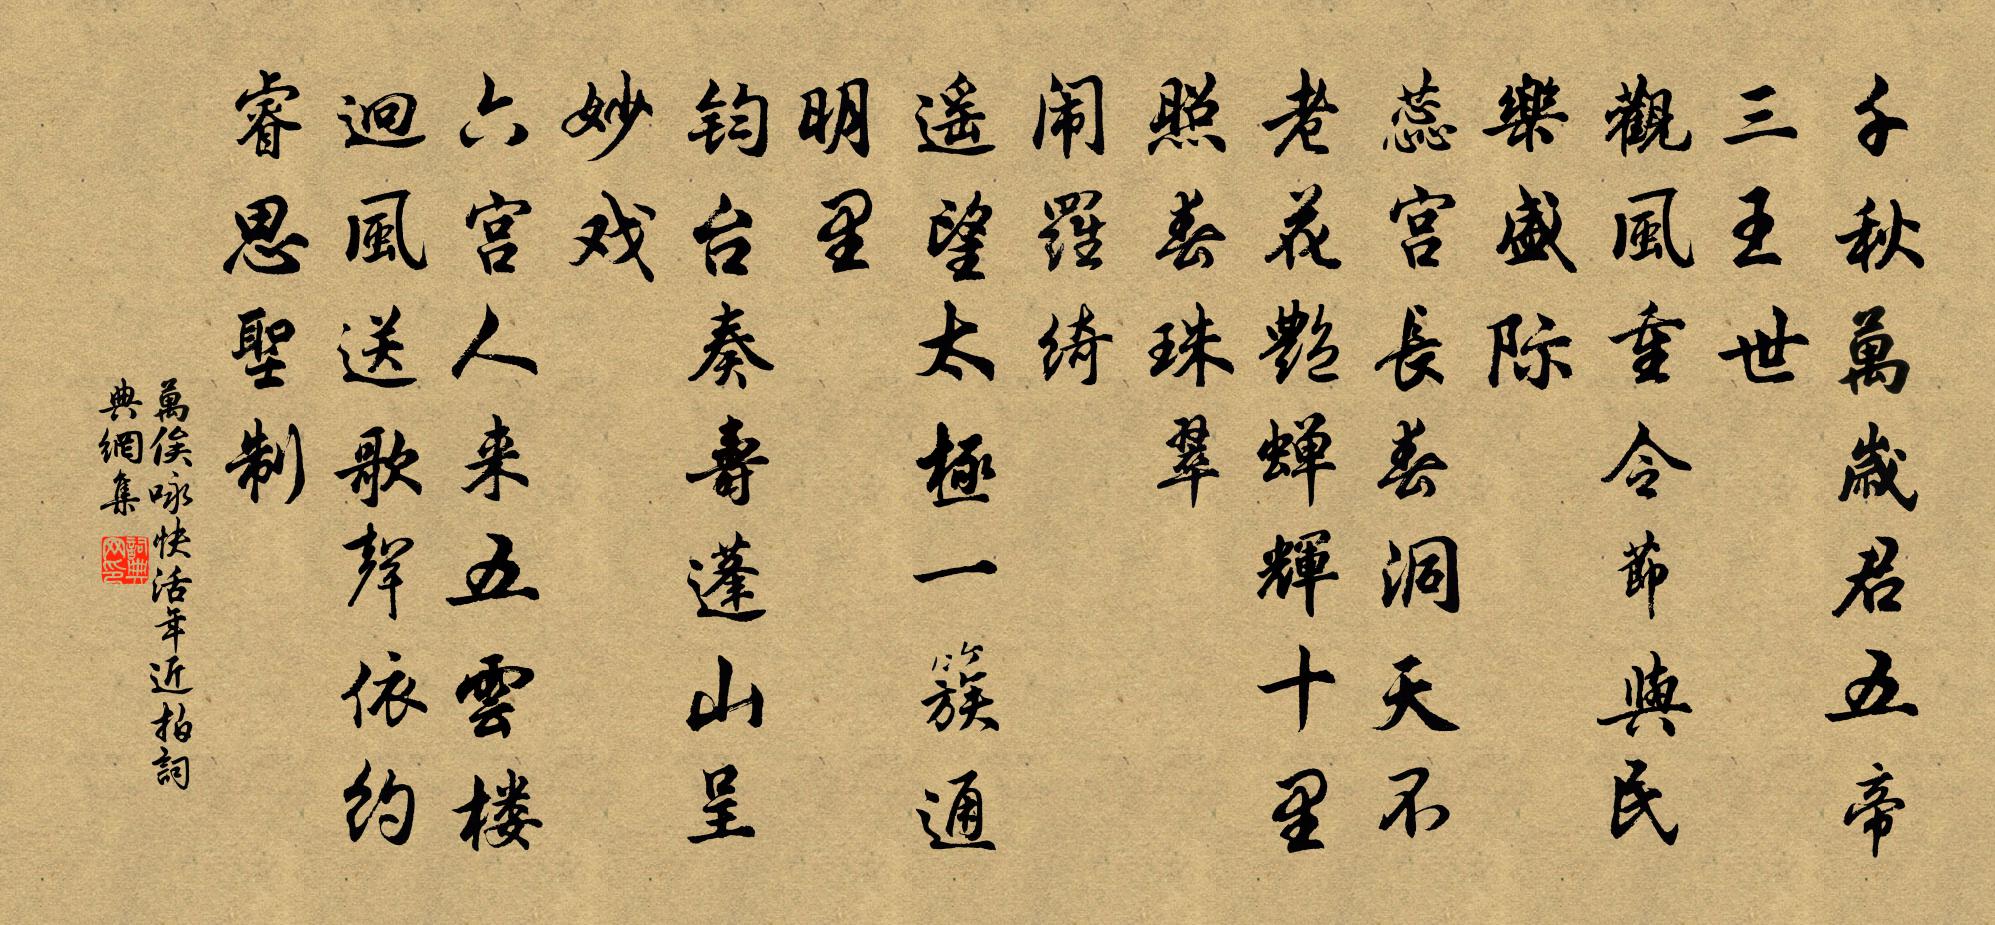 千秋萬歲君五帝
三王世
觀風重令節與民
樂盛际
蕊宫長春洞天不
老花艷蝉輝十里
照春珠翠
闹羅綺
遥望太極一簇通
明里
钧台奏壽蓬山呈
妙戏
六宫人来五雲楼
迴風送歌聲依约
睿思聖制
萬俟咏快活年近拍詞
典網集
詞典网印